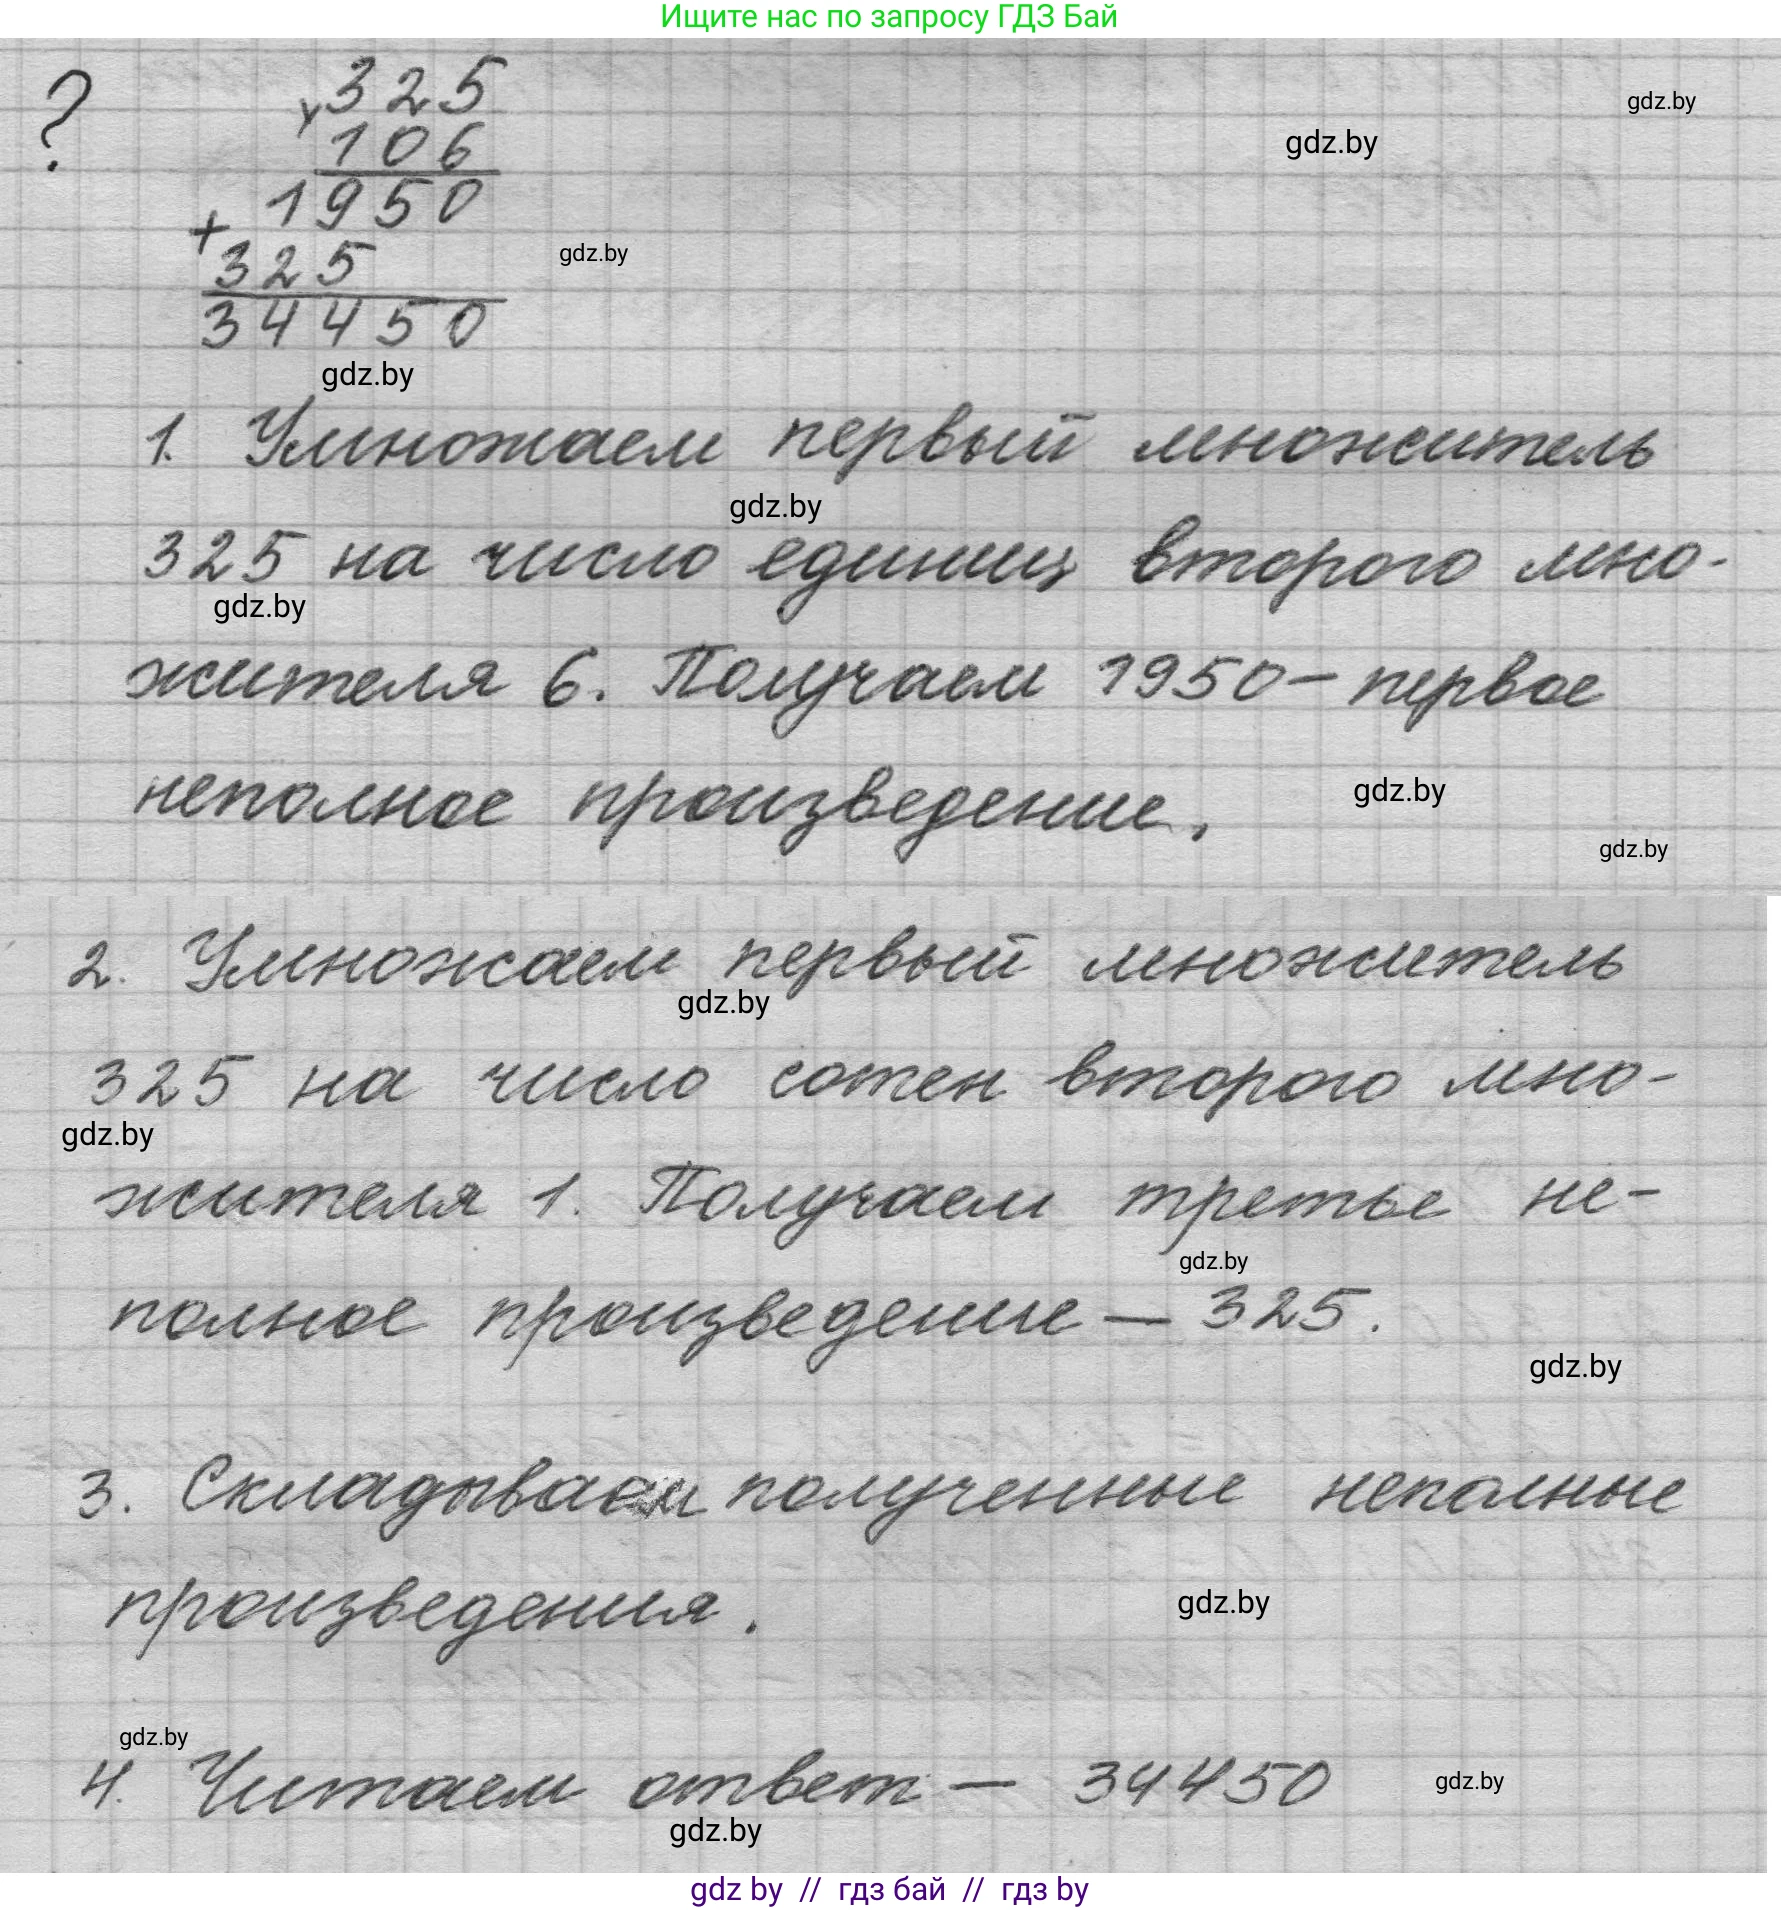 Ищите нас по запросу ГДЗ Бай
? × 325
gdz.by
106
gdz.by
1950
+
325
gdz.by
34450
gdz.by
1. Умножаем первый множитель
gdz.by
325 на число единиц второго мно-
gdz.by
жителя 6. Получаем 1950 – первое
неполное произведение.
gdz.by
gdz.by
2. Умножаем первый множитель
gdz.by
325 на число сотен второго мно-
gdz.by
жителя 1. Получаем третье не-
gdz.by
полное произведение — 325.
gdz.by
3. Складываем полученные неполные
произведения.
gdz.by
gdz.by
4. Читаем ответ — 34450
gdz.by
gdz.by
gdz by // гдз бай // гдз by